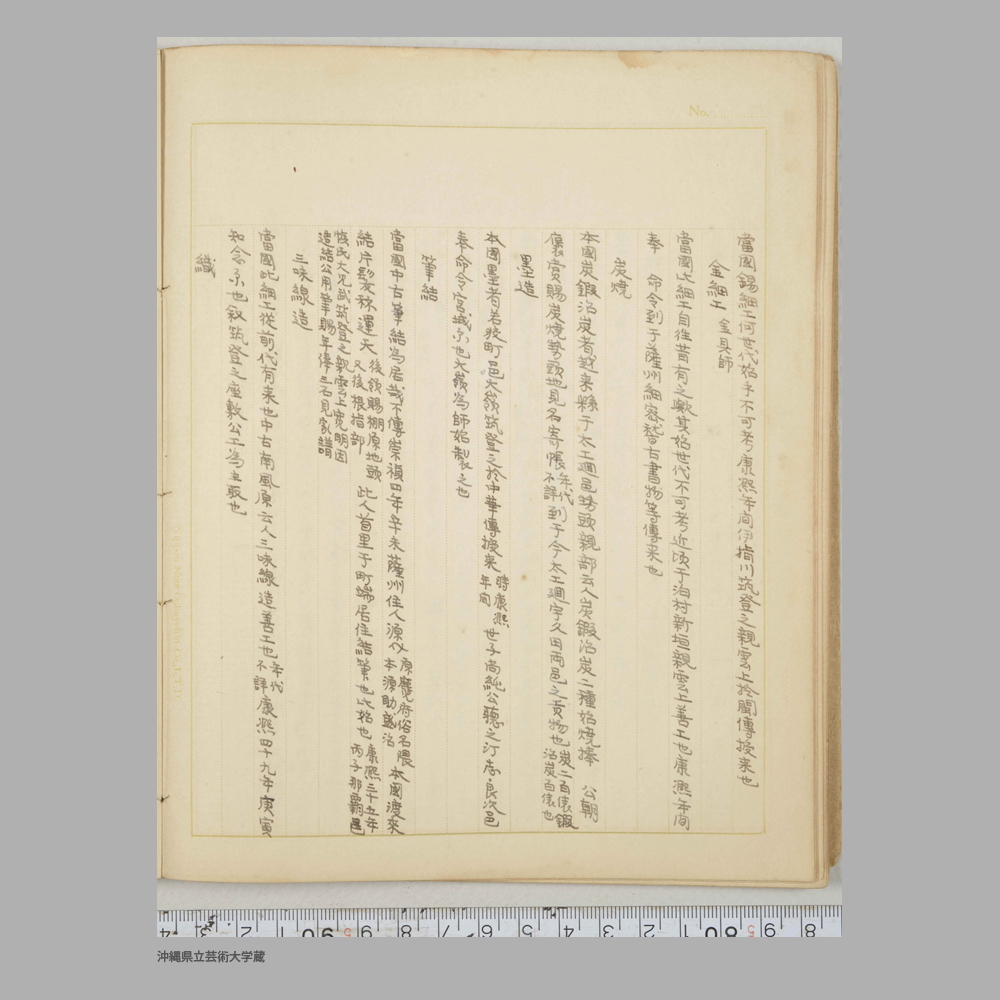 No.
當國錫細工何世代始乎不可考康熙年間伊指川筑登之親雲上於閩傳授来也
金細工 金具師
當國此細工自往昔有之歟其始世代不可考近頃于泊村新垣親雲上善工也康熙年間
奉 命令到于薩州細密稽古書物等傳来也
炭燒
本國炭鍛治炭者越来縣于太工廻邑坊頭親部云人炭鍛治炭二種始燒捧 公朝
褒賞賜炭燒勢頭地見名寄帳年代不詳到于今太工廻宇久田両邑之貢物也炭二百俵鍛治炭百俵也
墨造
本國墨者若狭町邑大嶺筑登之於中華傳授来時康熙年間 世子尚純公聴之汀志良次邑
奉命令宮城尓也大嶺為師始製之也
筆結
當國中古筆結為居哉不傳崇禎四年辛未薩州住人源仪原麑府俗名隈本源助盛治 本國渡来
結片髪称運天後領賜棚原地頭又後根指部 此人首里于町端居住結筆也此始也康熙三十五年丙子那覇邑
恢氏大兄武筑登之親雲上寛明因
造結公用筆賜年俸三石見家譜
三味線造
當國此細工從前代有来也中古南風原云人三味線造善工也年代不詳康熙四十九年庚寅
知念尓也叙筑登之座敷公工為主取也
織
沖縄県立芸術大学蔵